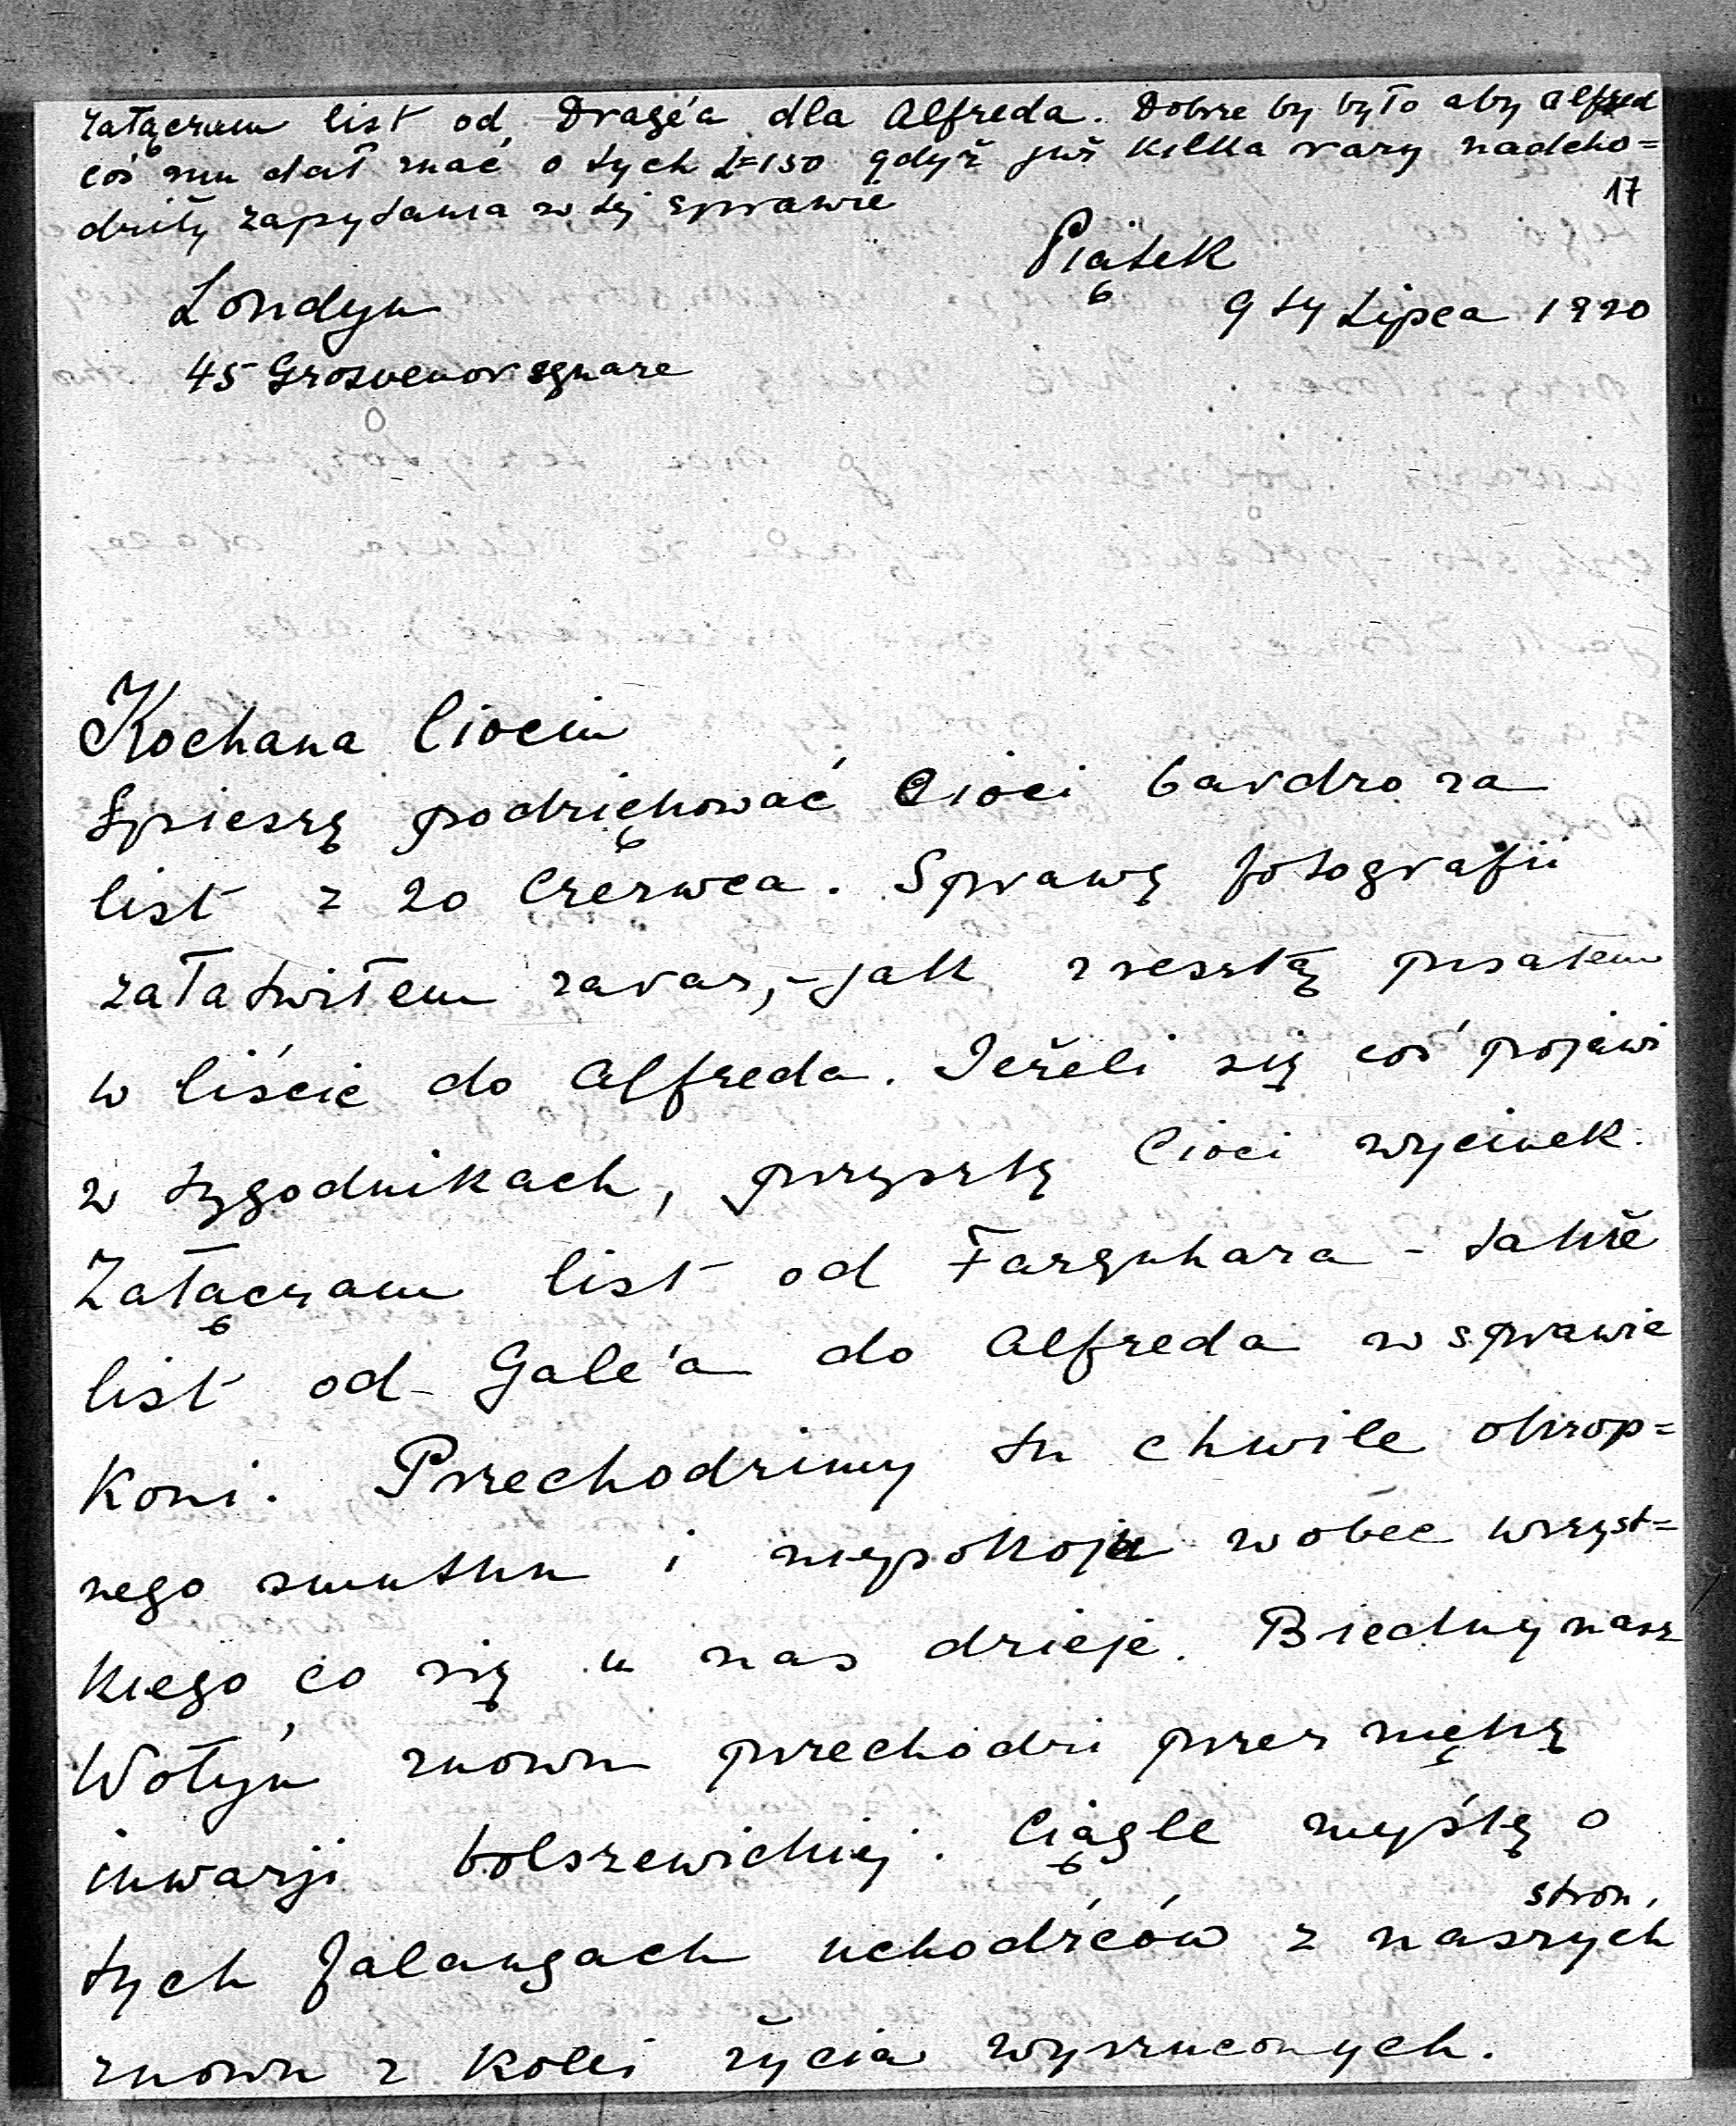 Załączam list od Dragé'a dla Alfreda. Dobrze by było aby Alfred
coś mu dał znać o tych £=150 gdyż już kilka razy nadcho=
dziły zapytania w tej sprawie
17
Piątek
Londyn
9ty Lipca 1920
45 Grosvenor square
Kochana Ciociu
Spieszę podziękować Cioci bardzo za
list z 20 Czerwca. Sprawę fotografii
załatwiłem zaraz, - jak zresztą pisałem
w liście do Alfreda. Jeżeli się coś pojawi
w tygodnikach, przyszlę Cioci wycinek.
Załączam list od Farquhara - także
list od Gale'a do Alfreda w sprawie
koni. Przechodzimy tu chwile okrop=
nego smutku i niepokoju wobec wszyst=
kiego co się u nas dzieje. Biedny nasz
Wołyń znowu przechodzi przez mękę
inwazji bolszewickiej. Ciągle myślę o
tych falangach uchodźców z naszych stron,
znowu z kolei życia wyrzuconych.